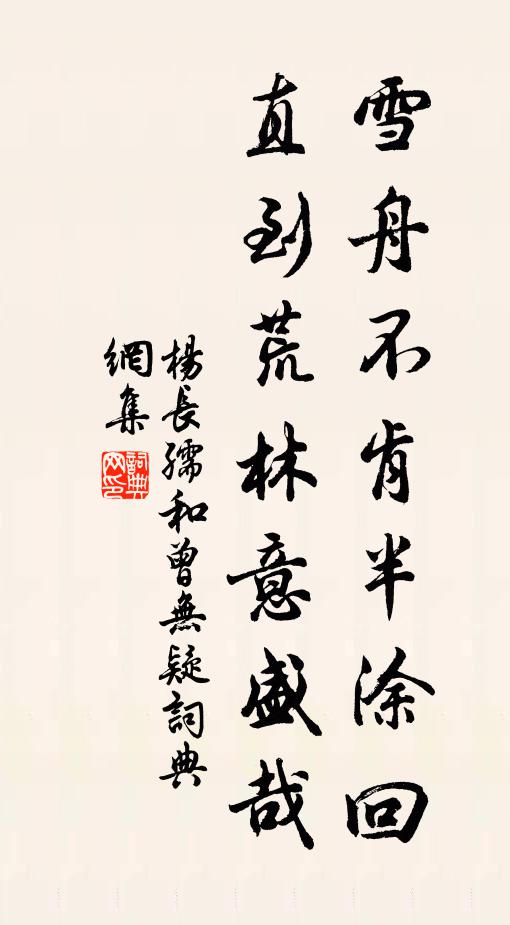 雪舟不肯半涂回
直到荒林意盛哉
楊長孺和曾無疑詞典
網集
詞典網印